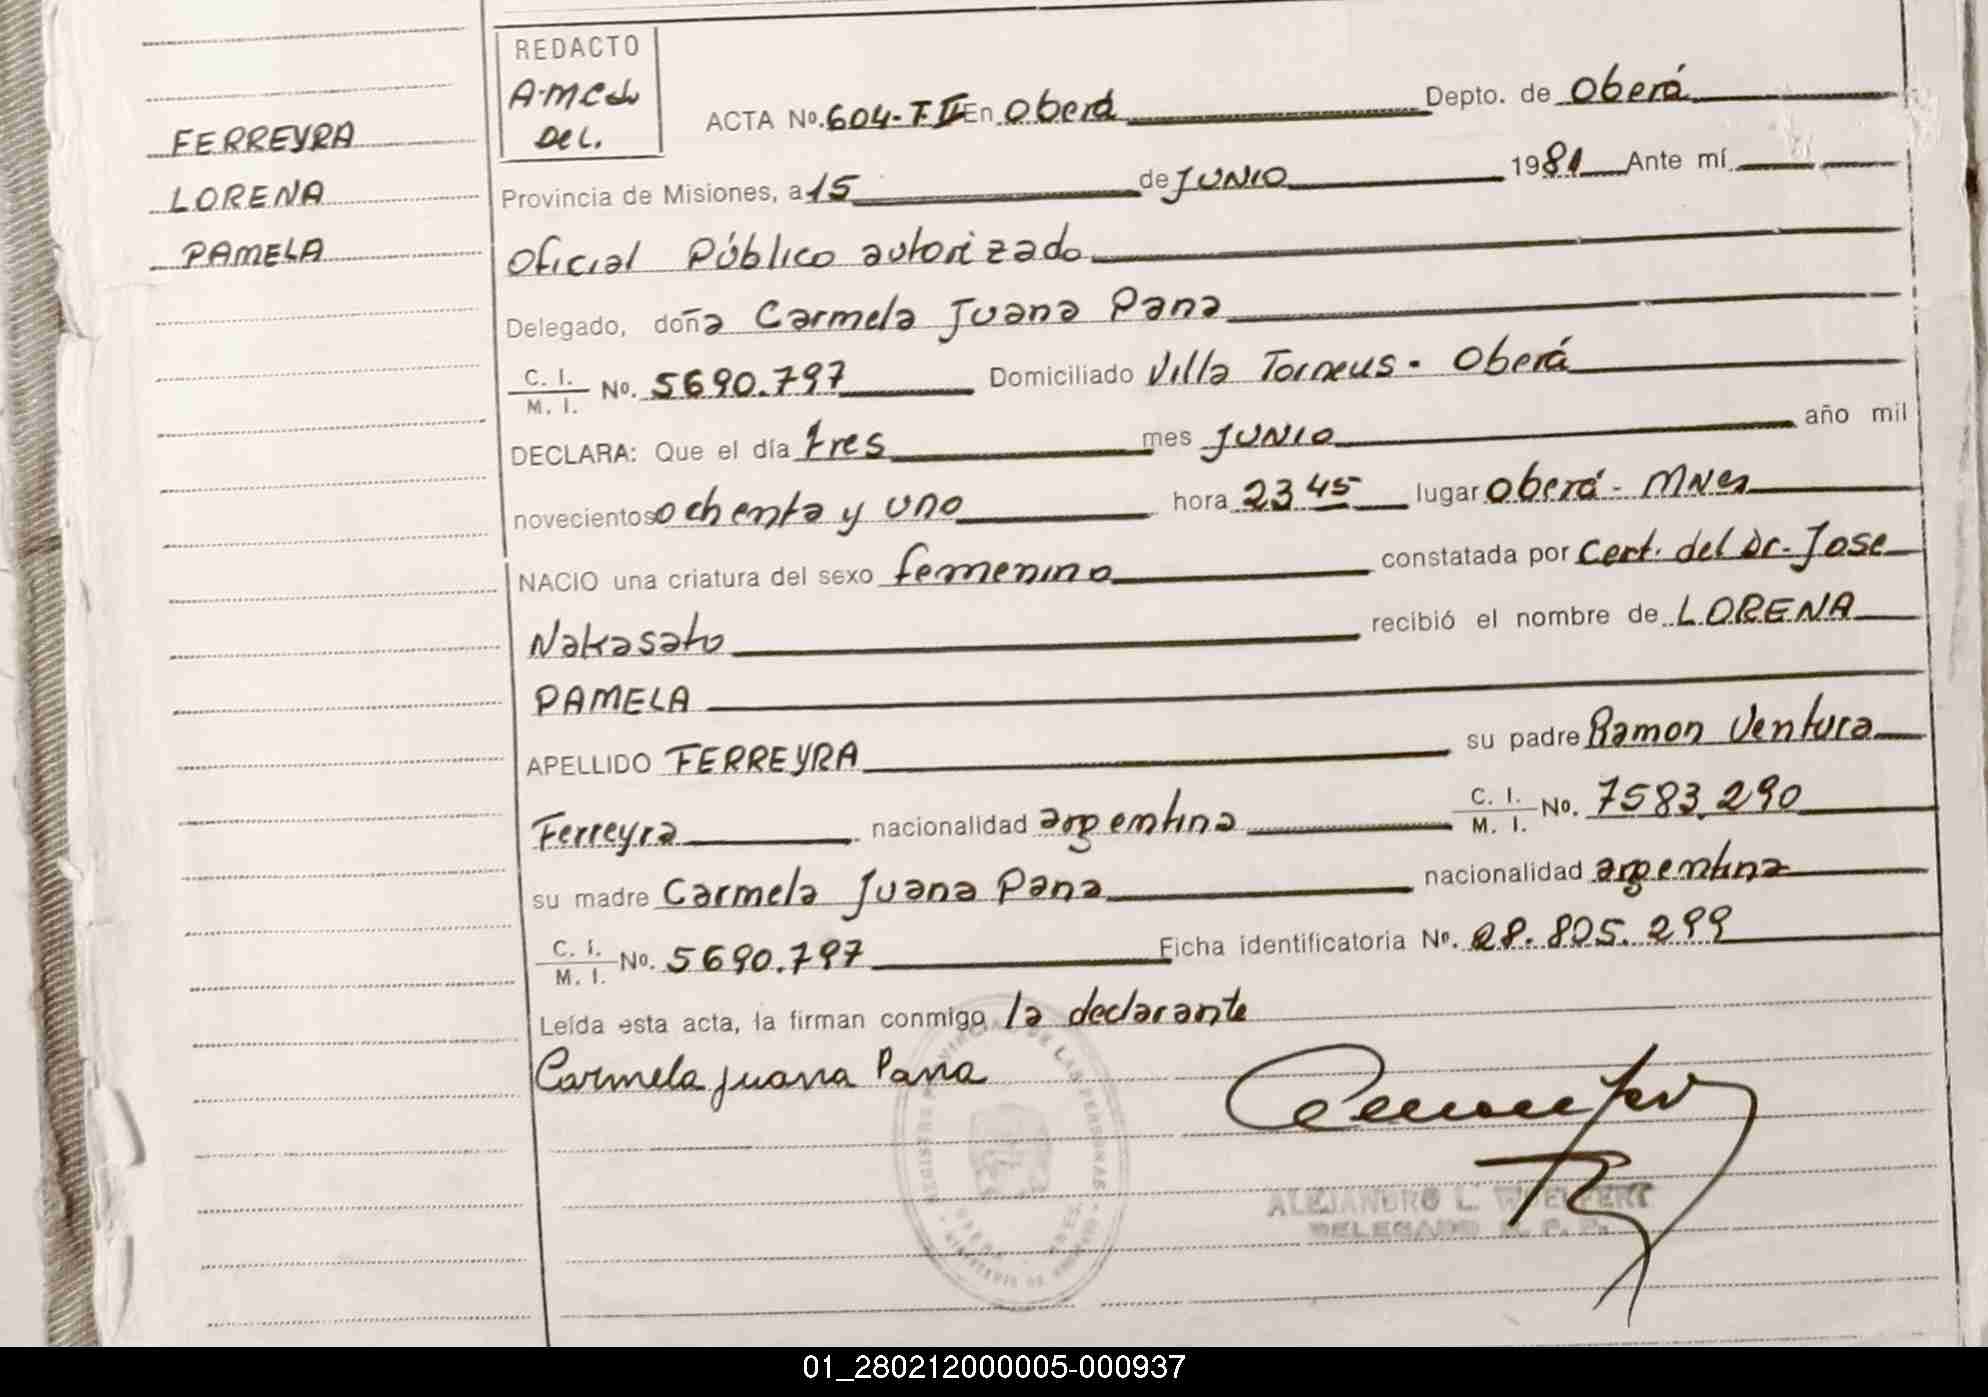 REDACTO
A.M.C. de
Del.
FERREYRA
LORENA
PAMELA
ACTA No. 604-T II En Oberá Depto. de Oberá
Provincia de Misiones, a 15 de JUNIO 1981 Ante mí
Oficial Público autorizado
Delegado, doña Carmela Juana Pana
C. I. No. 5690.797 Domiciliado Villa Torneus - Oberá
M. I.
DECLARA: Que el día tres mes JUNIO año mil
novecientos ochenta y uno hora 23 45 lugar Oberá - MNes
NACIO una criatura del sexo femenino constatada por Cert. del Dr. Jose
Nakasato recibió el nombre de LORENA
PAMELA
APELLIDO FERREYRA su padre Ramon Ventura
Ferreyra nacionalidad argentina C. I. No. 7583.290
M. I.
su madre Carmela Juana Pana nacionalidad argentina
C. I. No. 5690.797 Ficha identificatoria No. 28.805.299
M. I.
Leída esta acta, la firman conmigo la declarante
Carmela Juana Pana
ALEJANDRO L.
DELEGADO R. P. P.
01_280212000005-000937